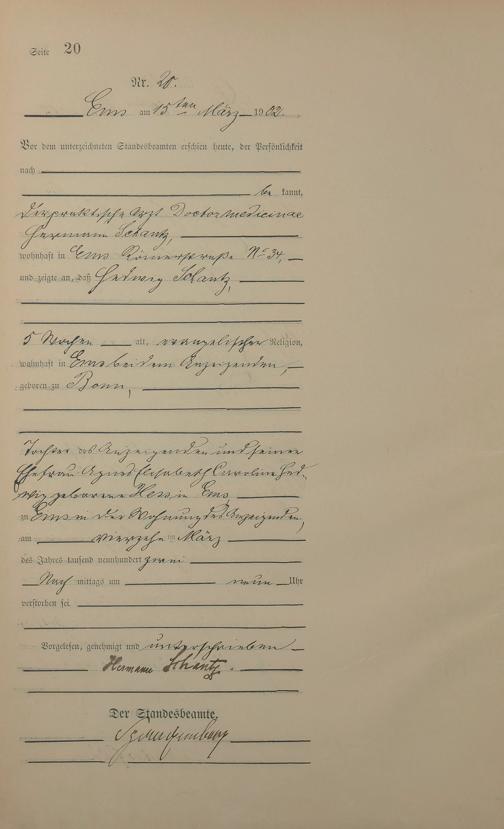 Seite 20
Nr. 20.
Ems am 15ten März 1902.
Vor dem unterzeichneten Standesbeamten erschien heute, der Persönlichkeit
nach
be kannt,
der praktische Arzt Doctor medicinae
Hermann Schantz,
wohnhaft in Ems Römerstraße No 34,
und zeigte an, daß Hedwig Schantz,
5 Wochen alt, evangelischer Religion,
wohnhaft in Ems bei dem Anzeigenden,
geboren zu Bonn,
Tochter des Anzeigenden und seiner
Ehefrau Agnes Elisabeth Caroline Hed-
wig geborene in Ems
zu Ems in der Wohnung des Anzeigenden,
am vierzehn März
des Jahres tausend neunhundert zwei
Nach mittags um neun Uhr
verstorben sei
Vorgelesen, genehmigt und unterschrieben
Hermann Schantz.
Der Standesbeamte.